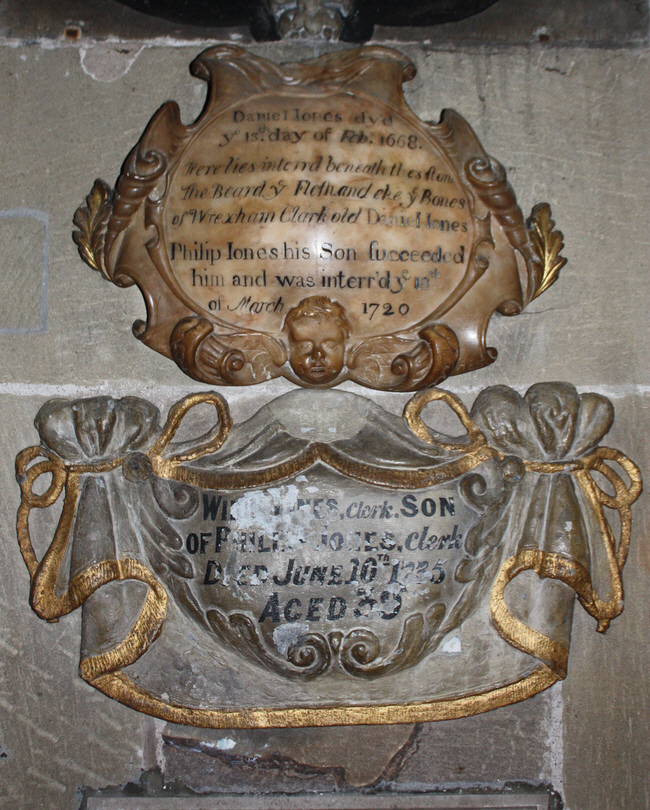 Daniel Iones dyd
yᵉ 13ᵗʰ day of Feb. 1668.
Here lies interr'd beneath thes ston
The Beard yᵉ Flesh and eke yᵉ Bones
of Wrexham Clark old Daniel Iones
Philip Iones his Son succeeded
him and was interr'd yᵉ
of March 1720
Clerk. SON
OF PHILIP JONES. Clerk
DIED JUNE 16TH
AGED